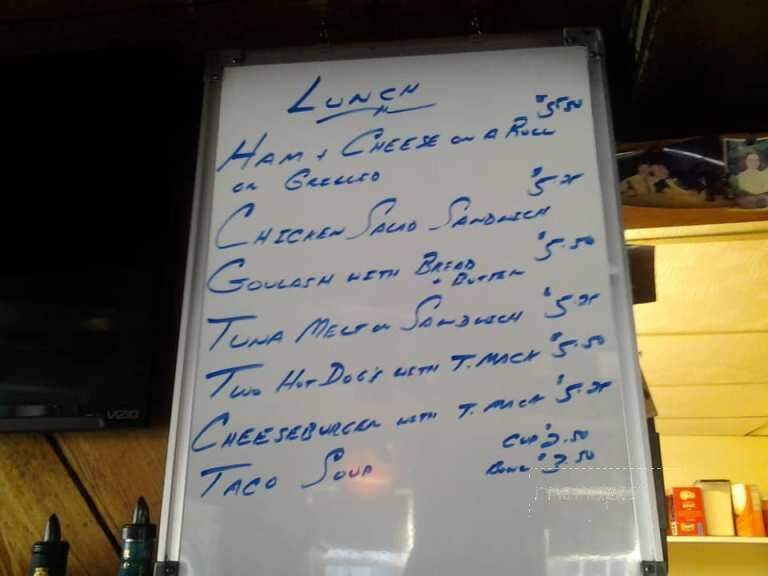 LUNCH
HAM + CHEESE ON A ROLL $5.50
OR GRILLED
CHICKEN SALAD SANDWICH $5.25
GOULASH WITH BREAD $5.50
+ BUTTER
TUNA MELT OR SANDWICH $5.25
TWO HOT DOG'S WITH T. MACK $5.50
CHEESEBURGER WITH T. MACK $5.25
TACO SOUP CUP $2.50
BOWL $3.50
VIZIO